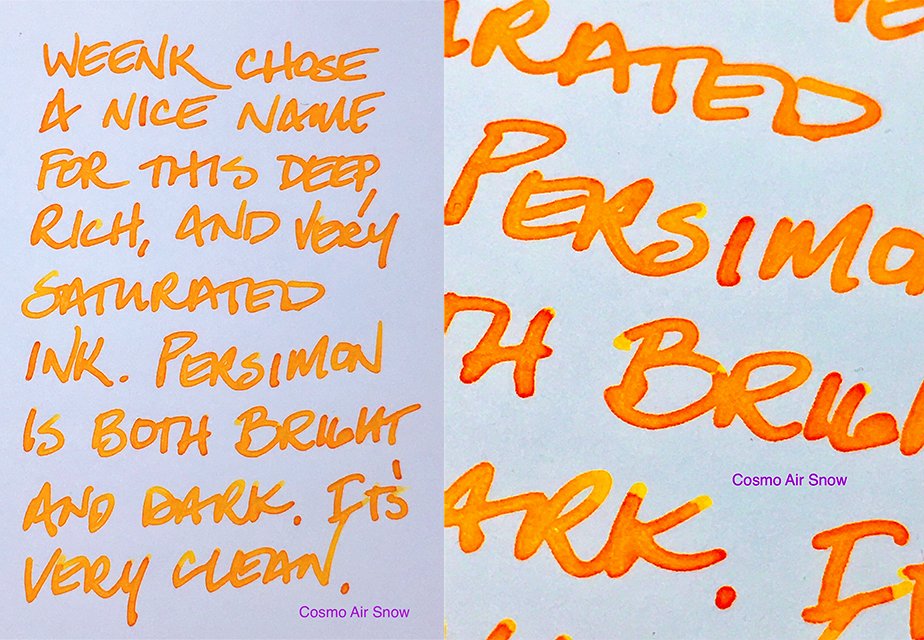 WEENK CHOSE
A NICE NAME
FOR THIS DEEP,
RICH, AND VERY
SATURATED
INK. PERSIMON
IS BOTH BRIGHT
AND DARK. IT'S
VERY CLEAN.
Cosmo Air Snow
RATED
PERSIMO
TH BRIGH
Cosmo Air Snow
ARK. I